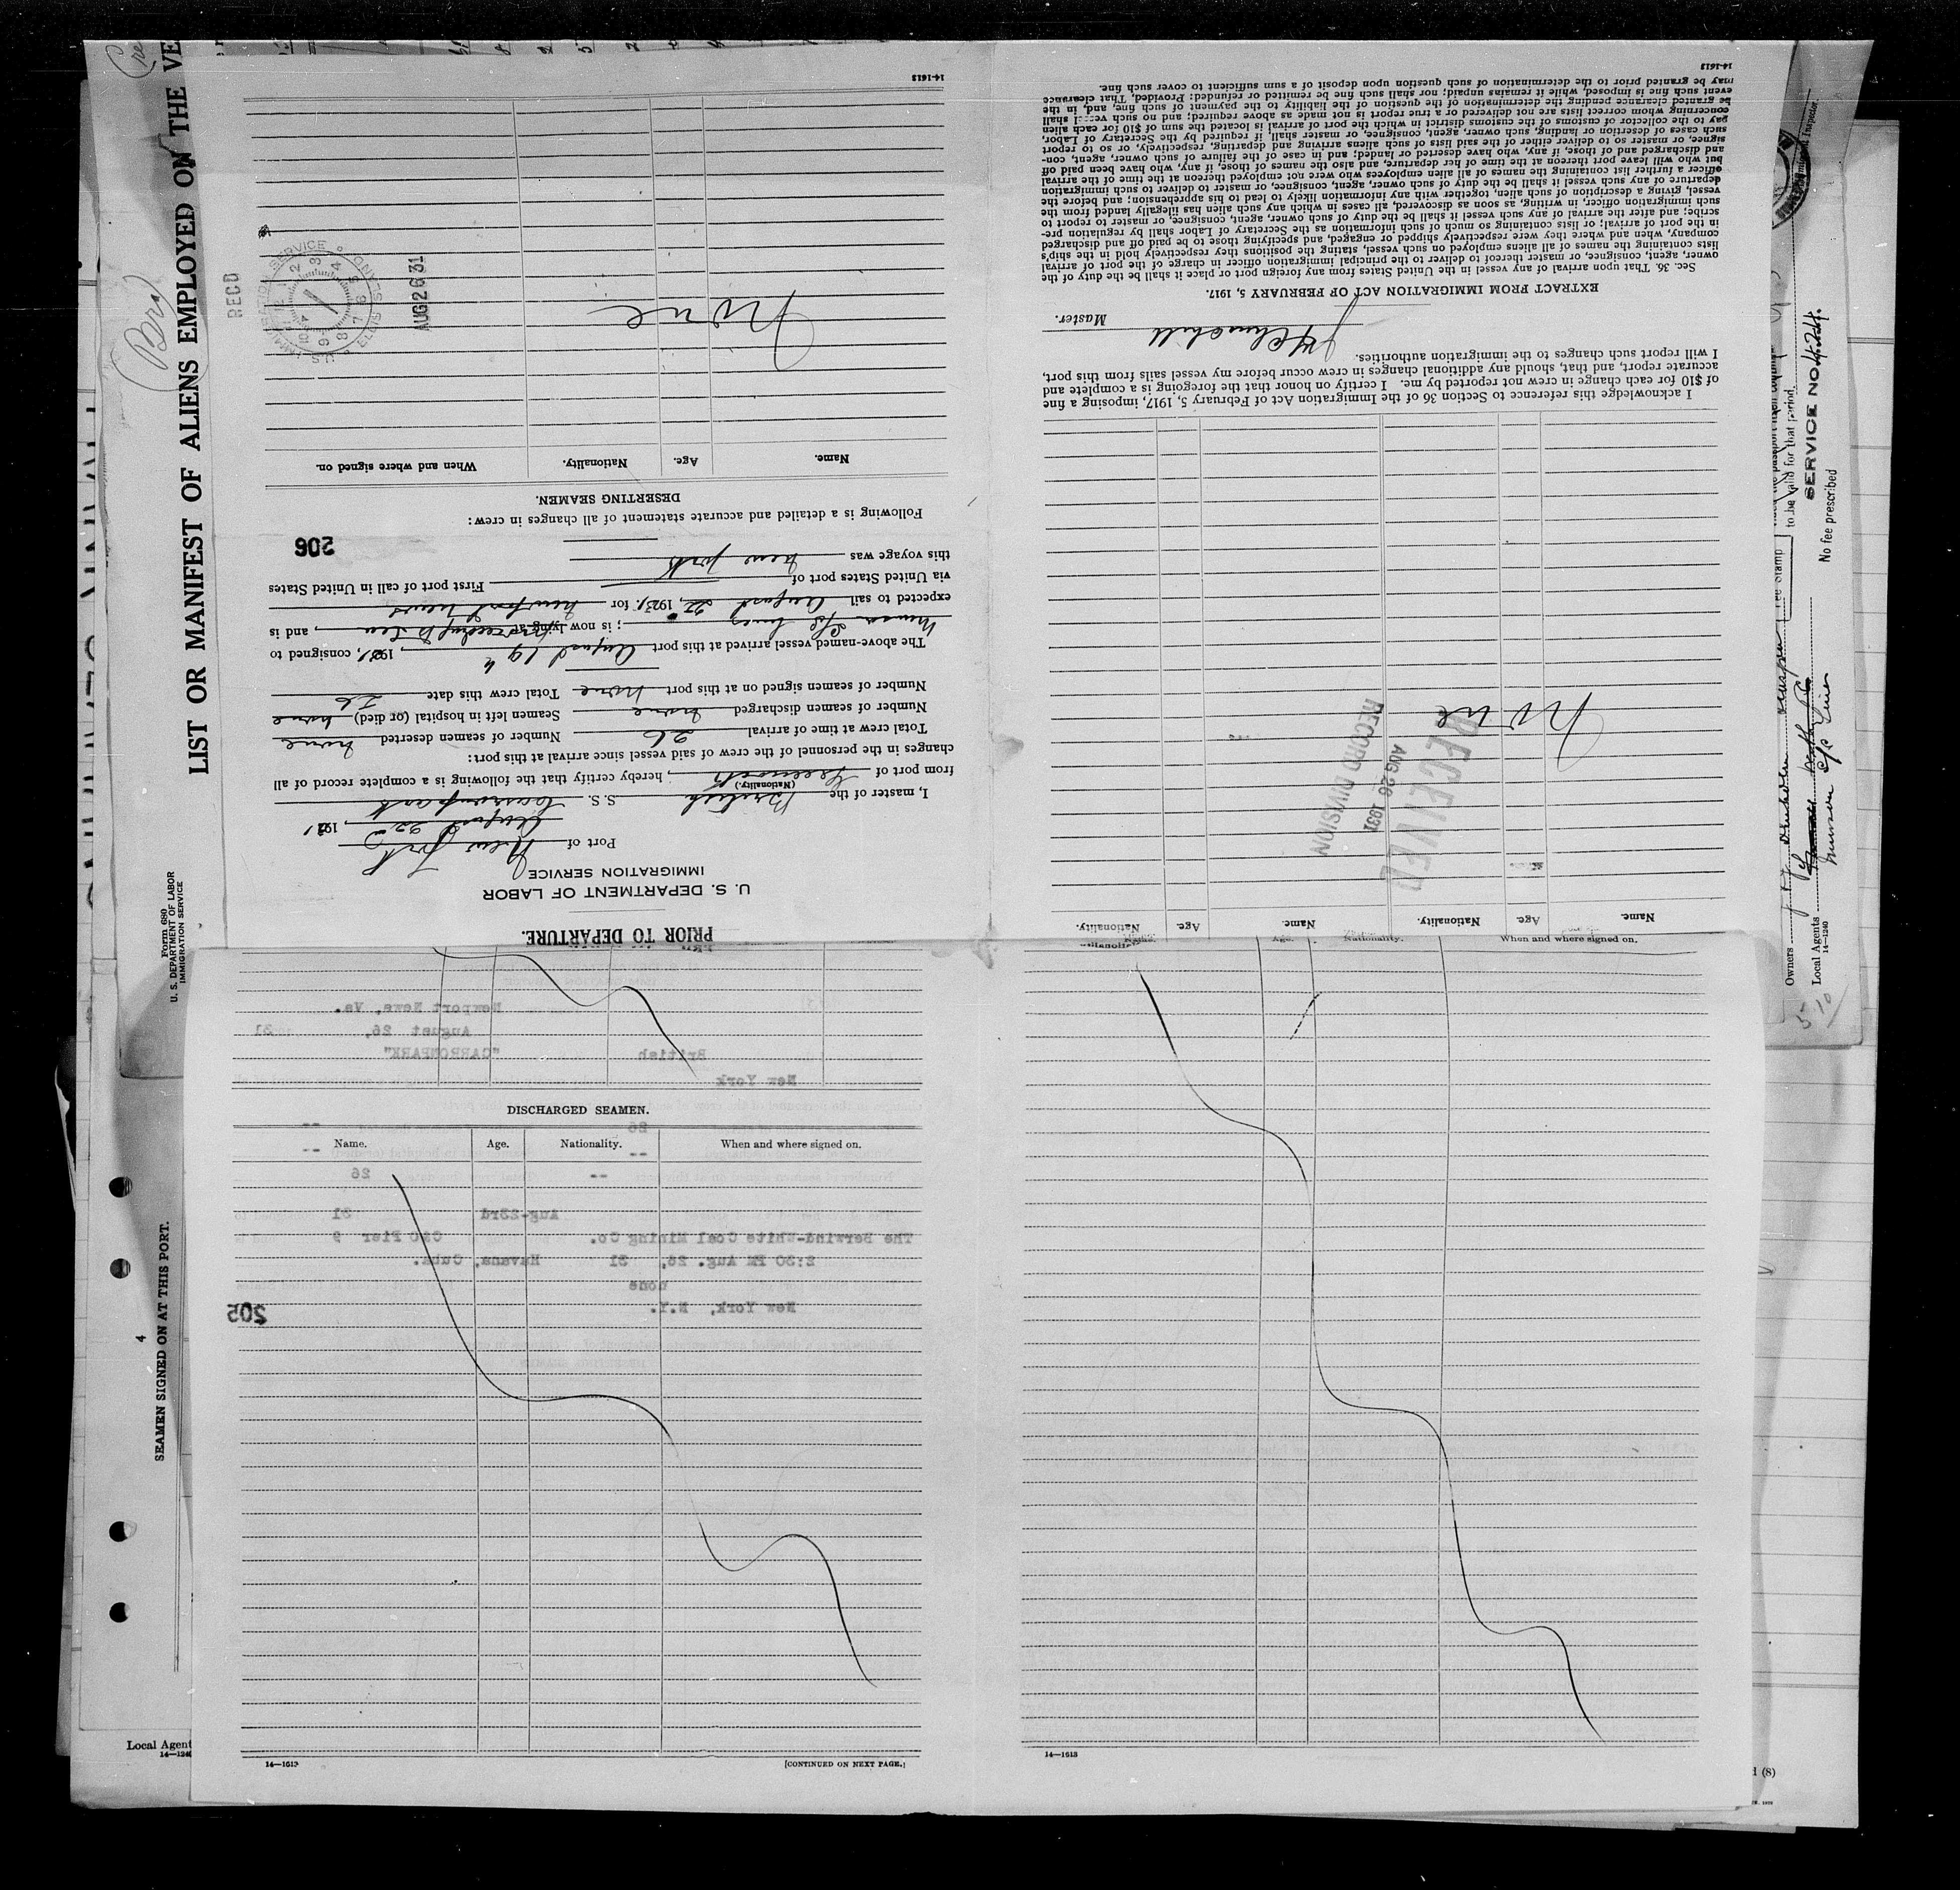 LIST OR MANIFEST OF ALIENS EMPLOYED ON THE VE
Form 680
U. S. DEPARTMENT OF LABOR
IMMIGRATION SERVICE
4
SEAMEN SIGNED ON AT THIS PORT.
Local Agent
PRIOR TO DEPARTURE.
U. S. DEPARTMENT OF LABOR
IMMIGRATION SERVICE
Port of New York
August 22nd, 1931
I, master of the British S. S. Carronpark
(Nationality.)
from port of Greenock, hereby certify that the following is a complete record of all
changes in the personnel of the crew of said vessel since arrival at this port:
Total crew at time of arrival 26 Number of seamen deserted none
Number of seamen discharged none Seamen left in hospital (or died) none
Number of seamen signed on at this port none Total crew this date 26
The above-named vessel arrived at this port August 19th, 1931, consigned to
Munson S/S Lines; is now lying at proceeding to Sea, and is
expected to sail August 22, 1931, for Newport News
via United States port of First port of call in United States
this voyage was New York
206
Following is a detailed and accurate statement of all changes in crew:
DESERTING SEAMEN.
Name. Age. Nationality. When and where signed on.
None
RECD
AUG 26 31
U. S. IMMIGRATION SERVICE
14-1613
Name. Age. Nationality. Name. Age. Nationality.
None
RECEIVED
AUG 26 1931
RECORD DIVISION
I acknowledge this reference to Section 36 of the Immigration Act of February 5, 1917, imposing a fine
of $10 for each change in crew not reported by me. I certify on honor that the foregoing is a complete and
accurate report, and that, should any additional changes in crew occur before my vessel sails from this port,
I will report such changes to the immigration authorities.
Master.
EXTRACT FROM IMMIGRATION ACT OF FEBRUARY 5, 1917.
Sec. 36. That upon arrival of any vessel in the United States from any foreign port or place it shall be the duty of the
owner, agent, consignee, or master thereof to deliver to the principal immigration officer in charge of the port of arrival
lists containing the names of all aliens employed on such vessel, stating the positions they respectively hold in the ship's
company, when and where they were respectively shipped or engaged, and specifying those to be paid off and discharged
in the port of arrival; or lists containing so much of such information as the Secretary of Labor shall by regulation pre-
scribe; and after the arrival of any such vessel it shall be the duty of such owner, agent, consignee, or master to report to
such immigration officer, in writing, as soon as discovered, all cases in which any such alien has illegally landed from the
vessel, giving a description of such alien, together with any information likely to lead to his apprehension; and before the
departure of any such vessel it shall be the duty of such owner, agent, consignee, or master to deliver to such immigration
officer a further list containing the names of all alien employees who were not employed thereon at the time of the arrival
but who will leave port thereon at the time of her departure, and also the names of those, if any, who have been paid off
and discharged and of those, if any, who have deserted or landed; and in case of the failure of such owner, agent, con-
signee, or master so to deliver either of the said lists of such aliens arriving and departing, respectively, or so to report
such cases of desertion or landing, such owner, agent, consignee, or master shall, if required by the Secretary of Labor,
pay to the collector of customs of the customs district in which the port of arrival is located the sum of $10 for each alien
concerning whom correct lists are not delivered or a true report is not made as above required; and no such vessel shall
be granted clearance pending the determination of the question of the liability to the payment of such fine, and, in the
event such fine is imposed, while it remains unpaid; nor shall such fine be remitted or refunded: Provided, That clearance
may be granted prior to the determination of such question upon deposit of a sum sufficient to cover such fine.
14-1613
Newport News, Va.
August 26, 31
British "CARRONPARK"
New York
26 --
-- --
-- 26
Aug-23rd 31
The Berwind-White Coal Mining Co. C&O Pier 9
2:30 PM Aug. 26, 31 Havana, Cuba.
none
New York, N.Y.
205
DISCHARGED SEAMEN.
Name. Age. Nationality. When and where signed on.
14-1613
[CONTINUED ON NEXT PAGE.]
Name. Age. Nationality. When and where signed on.
14-1613
Immigrant Inspector.
to be valid for that period.
Fee Stamp
SERVICE NO.
No fee prescribed
Owners
Local Agents
Munson S/S Lines
14-1240